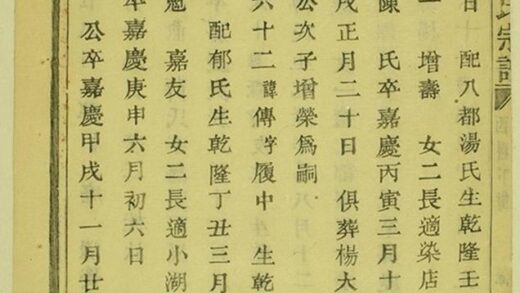 宗譜
配八都湯氏生乾隆壬
增壽 女二長適染店
陳 氏卒嘉慶丙寅三月十
戌正月二十日俱葬楊大
公次子增榮爲嗣
六十二 諱傳字履中 生乾
配郁氏生乾隆丁丑三月
勉 嘉友 女二長適小湖
卒嘉慶庚申六月初六日
公卒嘉慶甲戌十一月廿